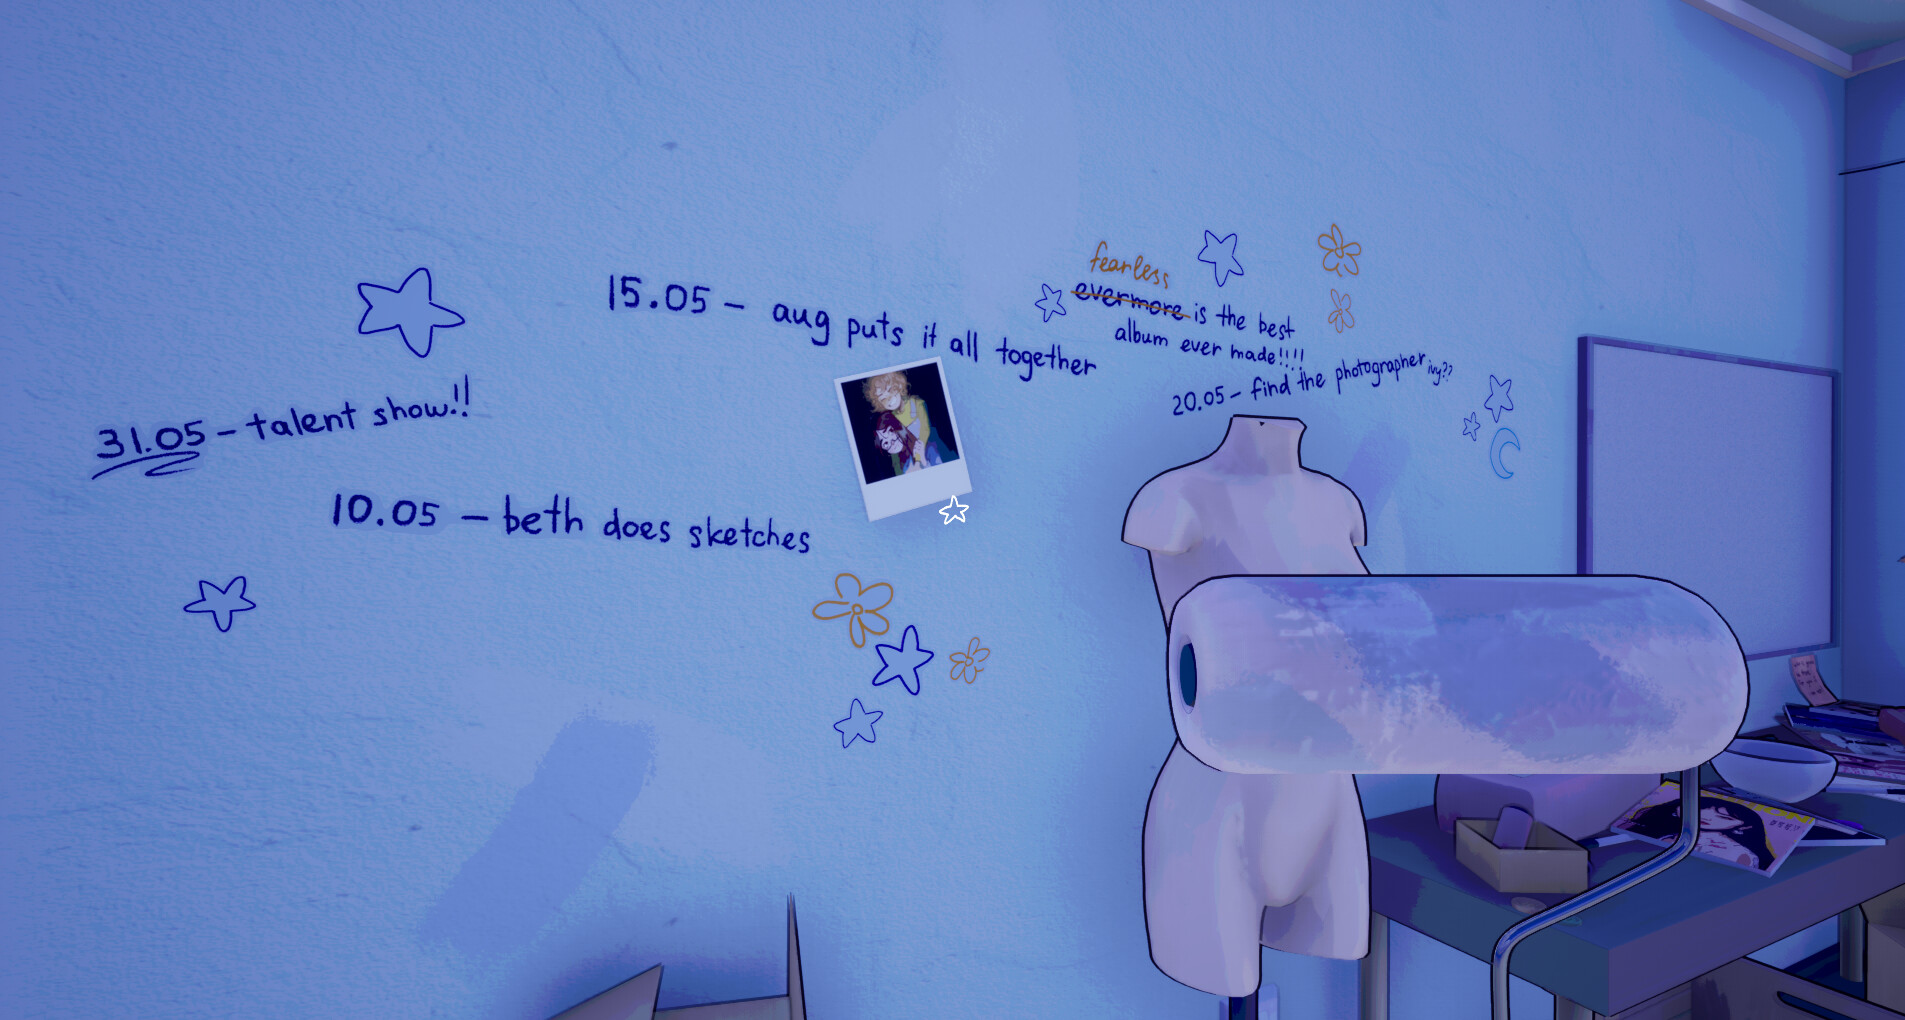 31.05 - talent show!!
10.05 - beth does sketches
15.05 - aug puts it all together
fearless
evermore is the best
album ever made!!!!
20.05 - find the photographer ivy??